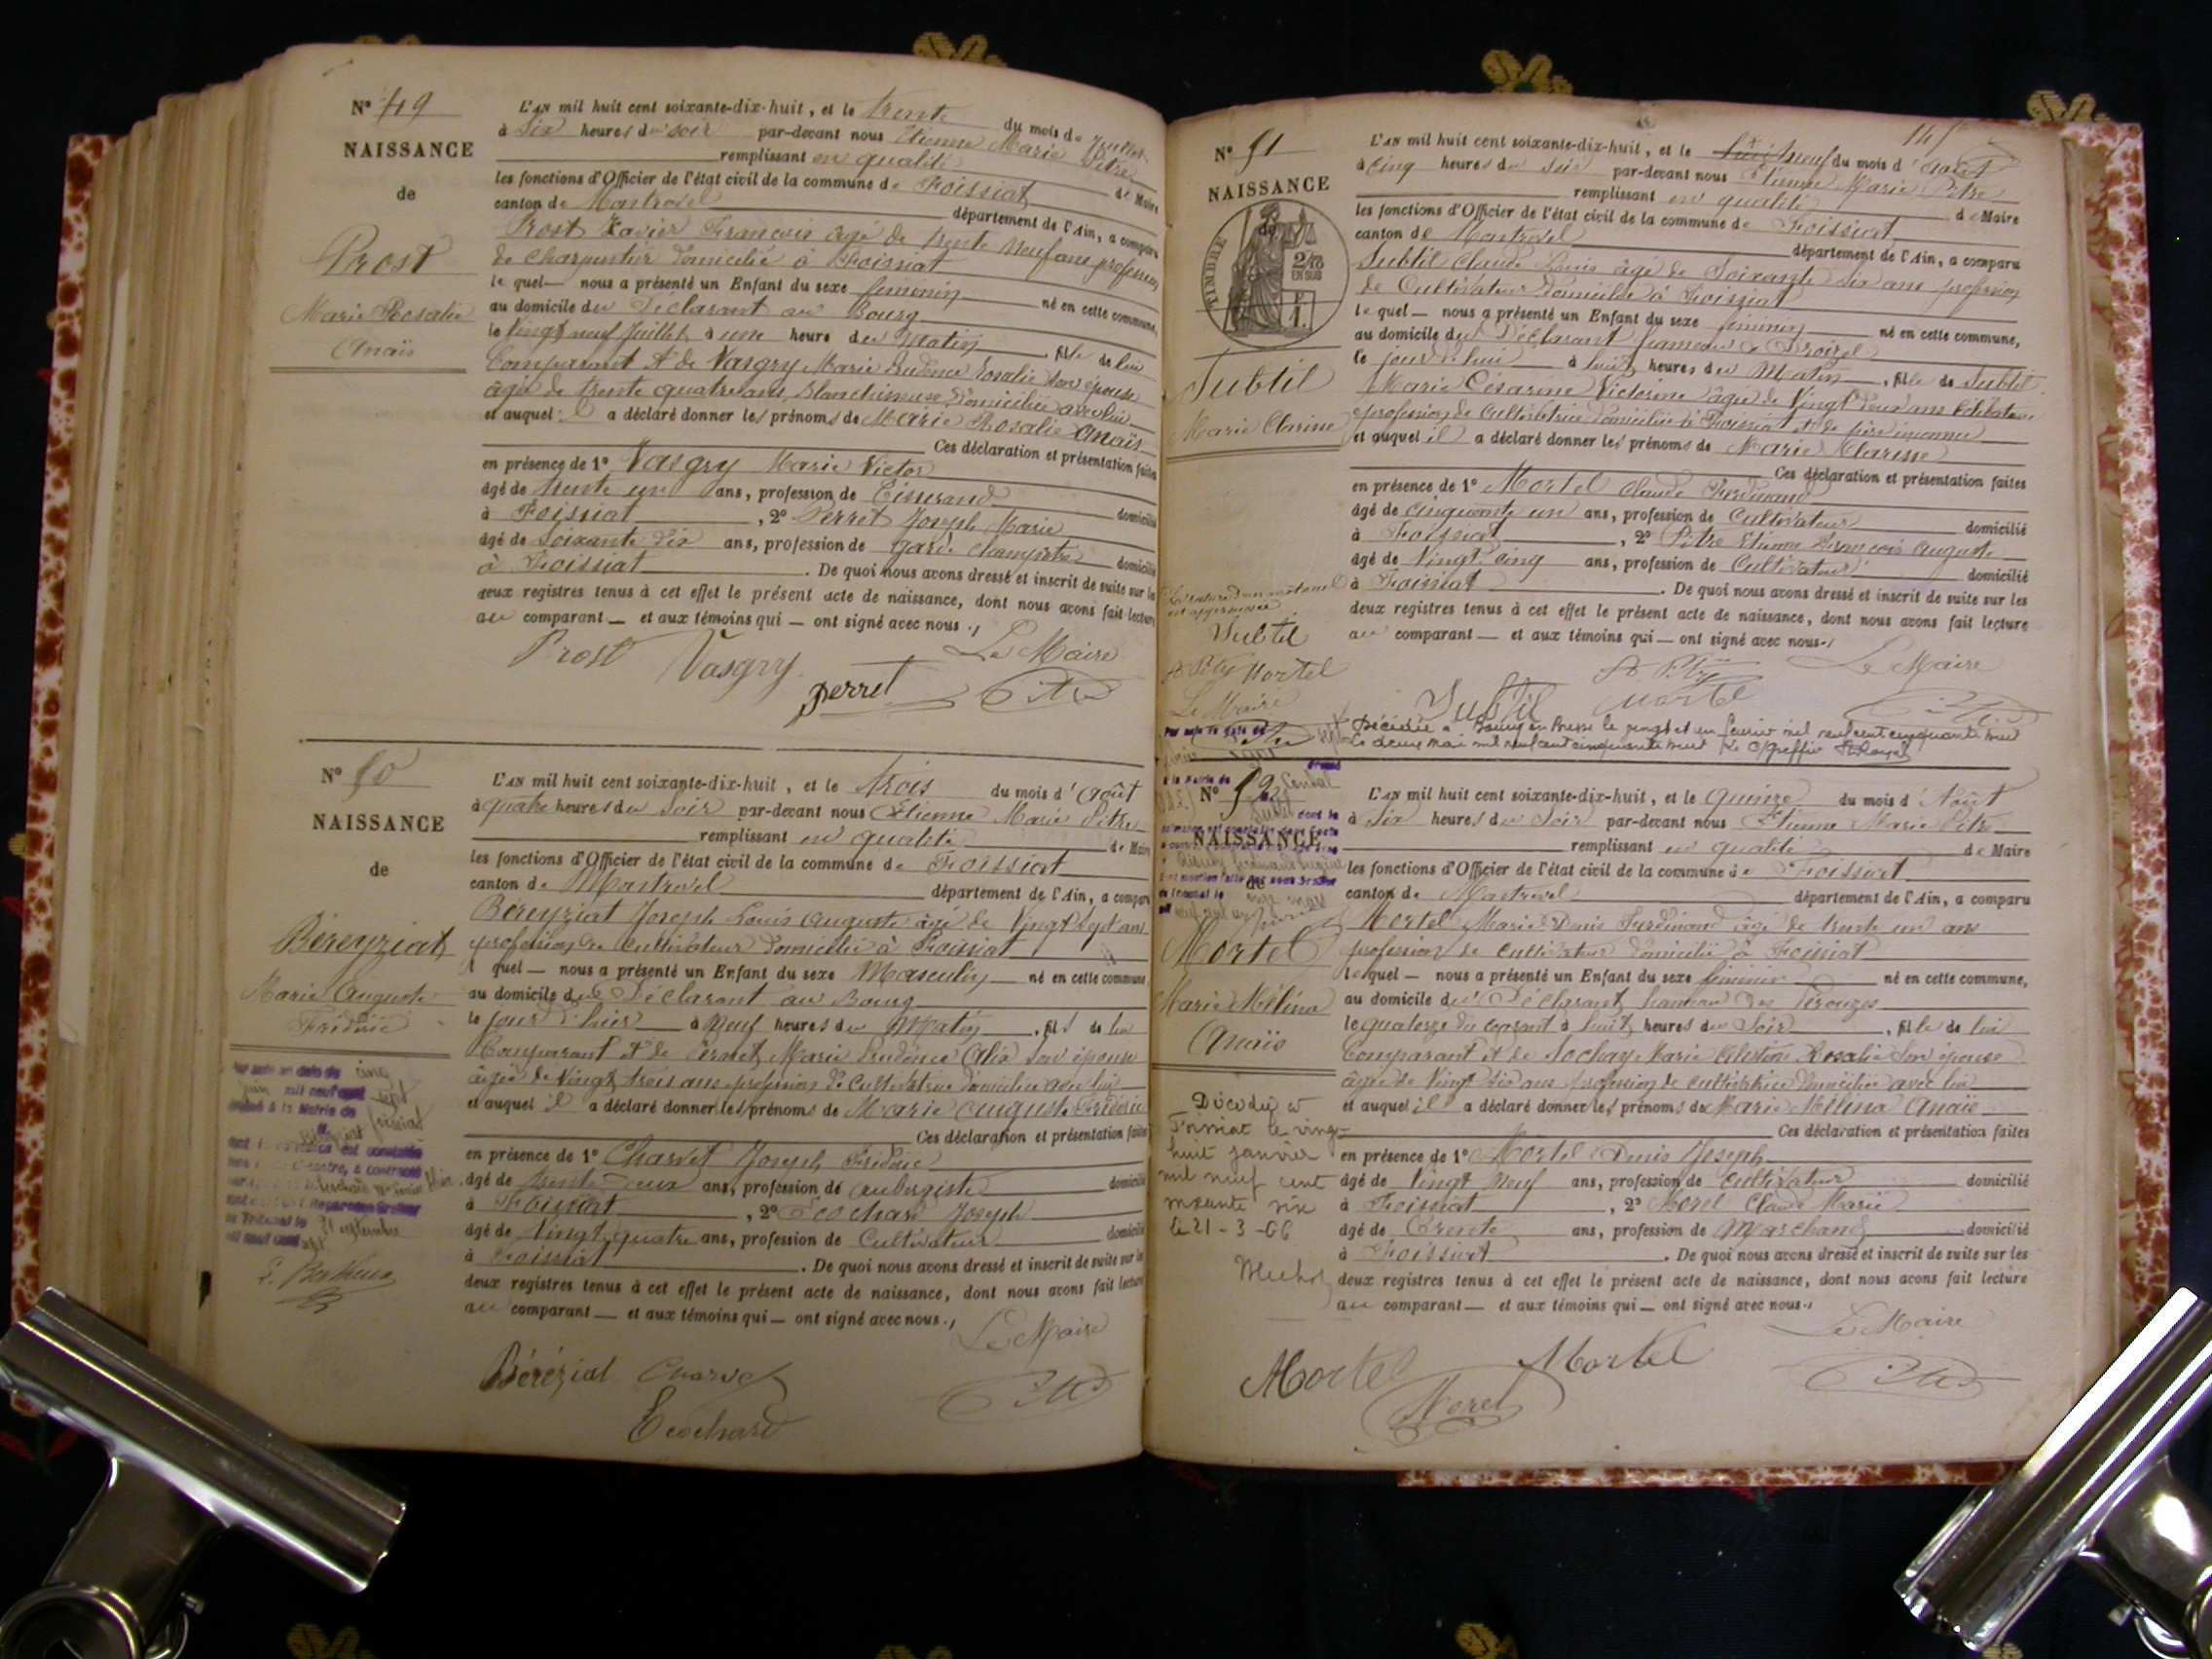 N° 49
NAISSANCE
de
Prost
Marie Rosalie
Anaïs
L'AN mil huit cent soixante-dix-huit, et le trente du mois de Juillet
à Six heures du soir par-devant nous Etienne Marie Pitre
remplissant en qualité de Maire
les fonctions d'Officier de l'état civil de la commune de Foissiat
canton de Montrevel département de l'Ain, a comparu
Prost Xavier François âgé de trente neuf ans profession
de charpentier domicilié à Foissiat
le quel — nous a présenté un Enfant du sexe feminin né en cette commune,
au domicile du Déclarant au Bourg
le Vingt neuf Juillet à une heure du matin, fille de lui
Comparant et de Vasgry Marie Prudence Rosalie son épouse
âgée de trente quatre ans, Blanchisseuse domiciliée avec lui
et auquel il a déclaré donner les prénoms de Marie Rosalie Anaïs
Ces déclaration et présentation faites
en présence de 1° Vasgry Marie Victor
âgé de trente un ans, profession de Tisserand domicilié
à Foissiat, 2° Perret Joseph Marie
âgé de Soixante dix ans, profession de garde champetre domicilié
à Foissiat. De quoi nous avons dressé et inscrit de suite sur les
deux registres tenus à cet effet le présent acte de naissance, dont nous avons fait lecture
au comparant — et aux témoins qui — ont signé avec nous.
Le Maire
Prost Vasgry
Perret
N° 50
NAISSANCE
de
Béreyziat
Marie Auguste
Fréderic
L'AN mil huit cent soixante-dix-huit, et le trois du mois d'Août
à quatre heures du Soir par-devant nous Etienne Marie Pitre
remplissant en qualité de Maire
les fonctions d'Officier de l'état civil de la commune de Foissiat
canton de Montrevel département de l'Ain, a comparu
Béreyziat Joseph Louis Auguste âgé de Vingt Sept ans
profession de cultivateur domicilié à Foissiat
l quel — nous a présenté un Enfant du sexe Masculin né en cette commune
au domicile du Déclarant au Bourg
le jour d'hier à Neuf heures du Matin, fils de lui
Comparant et de Marie Prudence son épouse
âgée de Vingt trois ans profession de cultivatrice domiciliée avec lui
et auquel il a déclaré donner les prénoms de Marie Auguste Fréderic
Ces déclaration et présentation faites
en présence de 1° Charvet Joseph Fréderic
âgé de trente deux ans, profession de aubergiste domicilié
à Foissiat, 2° Ecochard Joseph
âgé de Vingt quatre ans, profession de Cultivateur domicilié
à Foissiat. De quoi nous avons dressé et inscrit de suite sur les
deux registres tenus à cet effet le présent acte de naissance, dont nous avons fait lecture
au comparant — et aux témoins qui — ont signé avec nous.
Le Maire
Bérézial Charvet
Ecochard
145
N° 51
NAISSANCE
de
TIMBRE
2/10
EN SUS
Subtil
Marie Clarine
L'AN mil huit cent soixante-dix-huit, et le neuf du mois d'août
à Cinq heures du Soir par-devant nous Etienne Marie Pitre
remplissant en qualité de Maire
les fonctions d'Officier de l'état civil de la commune de Foissiat
canton de Montrevel département de l'Ain, a comparu
Subtil Claude Louis âgé de Soixante six ans profession
de Cultivateur domicilié à Foissiat
le quel — nous a présenté un Enfant du sexe féminin né en cette commune,
au domicile du Déclarant hameau
ce jour d'hui à huit heures du Matin, fille de Subtil
Marie Césarine Victorine âgée de Vingt deux ans Célibataire
profession de Cultivatrice domiciliée à Foissiat et de père inconnu
et auquel il a déclaré donner les prénoms de Marie Clarisse
Ces déclaration et présentation faites
en présence de 1° Mortel Claude Ferdinand
âgé de Cinquante un ans, profession de Cultivateur domicilié
à Foissiat, 2° Pitre Etienne François Auguste
âgé de Vingt cinq ans, profession de Cultivateur domicilié
à Foissiat. De quoi nous avons dressé et inscrit de suite sur les
deux registres tenus à cet effet le présent acte de naissance, dont nous avons fait lecture
au comparant — et aux témoins qui — ont signé avec nous.
Subtil
Mortel
Le Maire
Le Maire
Subtil Mortel
Décédée à Bourg en Bresse le vingt et un février mil neuf cent cinquante huit
Le deux mai mil neuf cent cinquante huit Le Greffier
N° 52
NAISSANCE
de
Mortel
Marie Mélina
Anaïs
Décédée à
Foissiat le vingt-
huit janvier
mil neuf cent
soixante six
le 21-3-66
L'AN mil huit cent soixante-dix-huit, et le quinze du mois d'Août
à Six heures du Soir par-devant nous Etienne Marie Pitre
remplissant en qualité de Maire
les fonctions d'Officier de l'état civil de la commune de Foissiat
canton de Montrevel département de l'Ain, a comparu
Mortel Marie Denis Ferdinand âgé de trente un ans
profession de cultivateur domicilié à Foissiat
le quel — nous a présenté un Enfant du sexe féminin né en cette commune,
au domicile du Déclarant hameau des
le quatorze du courant à huit heures du Soir, fille de lui
Comparant et de Sochay Marie Célestine Rosalie son épouse
âgée de Vingt six ans profession de cultivatrice domiciliée avec lui
et auquel il a déclaré donner les prénoms de Marie Mélina Anaïs
Ces déclaration et présentation faites
en présence de 1° Mortel Denis Joseph
âgé de Vingt neuf ans, profession de Cultivateur domicilié
à Foissiat, 2° Morel Claude Marie
âgé de Trente ans, profession de Marchand domicilié
à Foissiat. De quoi nous avons dressé et inscrit de suite sur les
deux registres tenus à cet effet le présent acte de naissance, dont nous avons fait lecture
au comparant — et aux témoins qui — ont signé avec nous.
Le Maire
Mortel Mortel
Morel